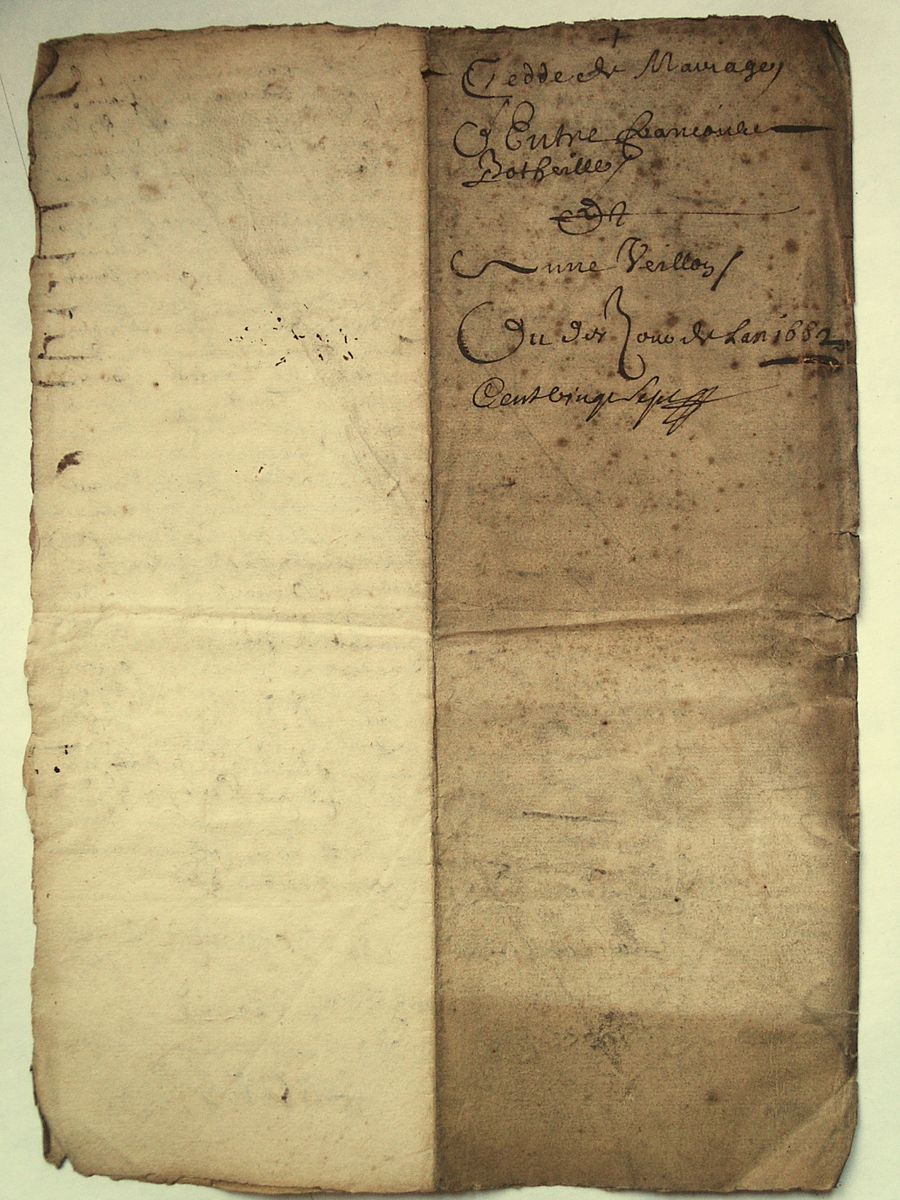 Cedde de Mariage
Entre francoise
Botherelle
Et
Anne Veillon
Du der Jour de Lan 1682
Cent vingt Sept